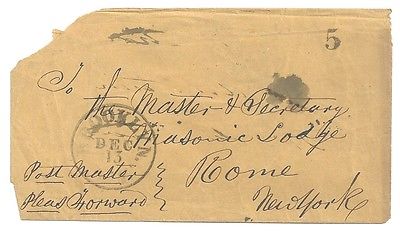 5
To
the Master & Secretary
Masonic Lodge
Rome
New York
BROOKLYN N.
DEC
13
Post Master
Pleas Forward